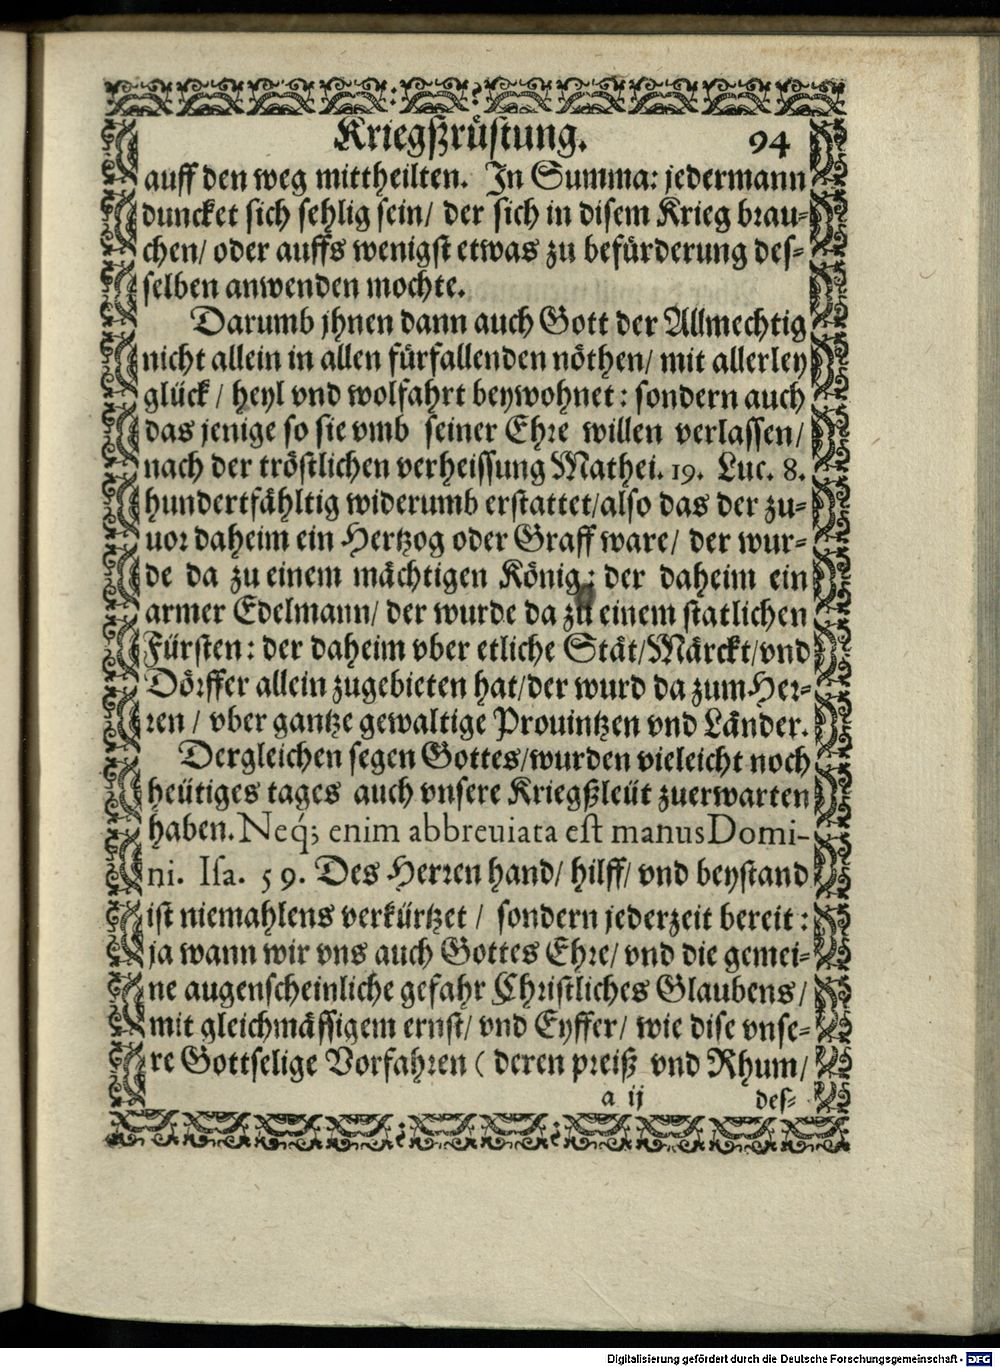 Kriegßrüstung. 94
auff den weg mittheilten. In Summa: jedermann
duncket sich sehlig sein/ der sich in disem Krieg brau-
chen/ oder auffs wenigst etwas zu befürderung des-
selben anwenden mochte.
Darumb jhnen dann auch Gott der Allmechtig
nicht allein in allen fürfallenden nöthen/ mit allerley
glück / heyl vnd wolfahrt beywohnet: sondern auch
das jenige so sie vmb seiner Ehre willen verlassen/
nach der tröstlichen verheissung Mathei. 19. Luc. 8.
hundertfähltig widerumb erstattet/also das der zu-
uor daheim ein Hertzog oder Graff ware/ der wur-
de da zu einem mächtigen König: der daheim ein
armer Edelmann/ der wurde da zu einem statlichen
Fürsten: der daheim vber etliche Stät/Märckt/vnd
Dörffer allein zugebieten hat/der wurd da zum Her-
ren / vber gantze gewaltige Prouintzen vnd Länder.
Dergleichen segen Gottes/wurden vieleicht noch
heütiges tages auch vnsere Kriegßleüt zuerwarten
haben. Neq́; enim abbreuiata est manus Domi-
ni. Isa. 59. Des Herren hand/ hilff/ vnd beystand
ist niemahlens verkürtzet / sondern jederzeit bereit:
ja wann wir vns auch Gottes Ehre/ vnd die gemei-
ne augenscheinliche gefahr Christliches Glaubens/
mit gleichmässigem ernst/ vnd Eyffer/ wie dise vnse-
re Gottselige Vorfahren ( deren preiß vnd Rhum/
a ij des-
Digitalisierung gefördert durch die Deutsche Forschungsgemeinschaft - DFG